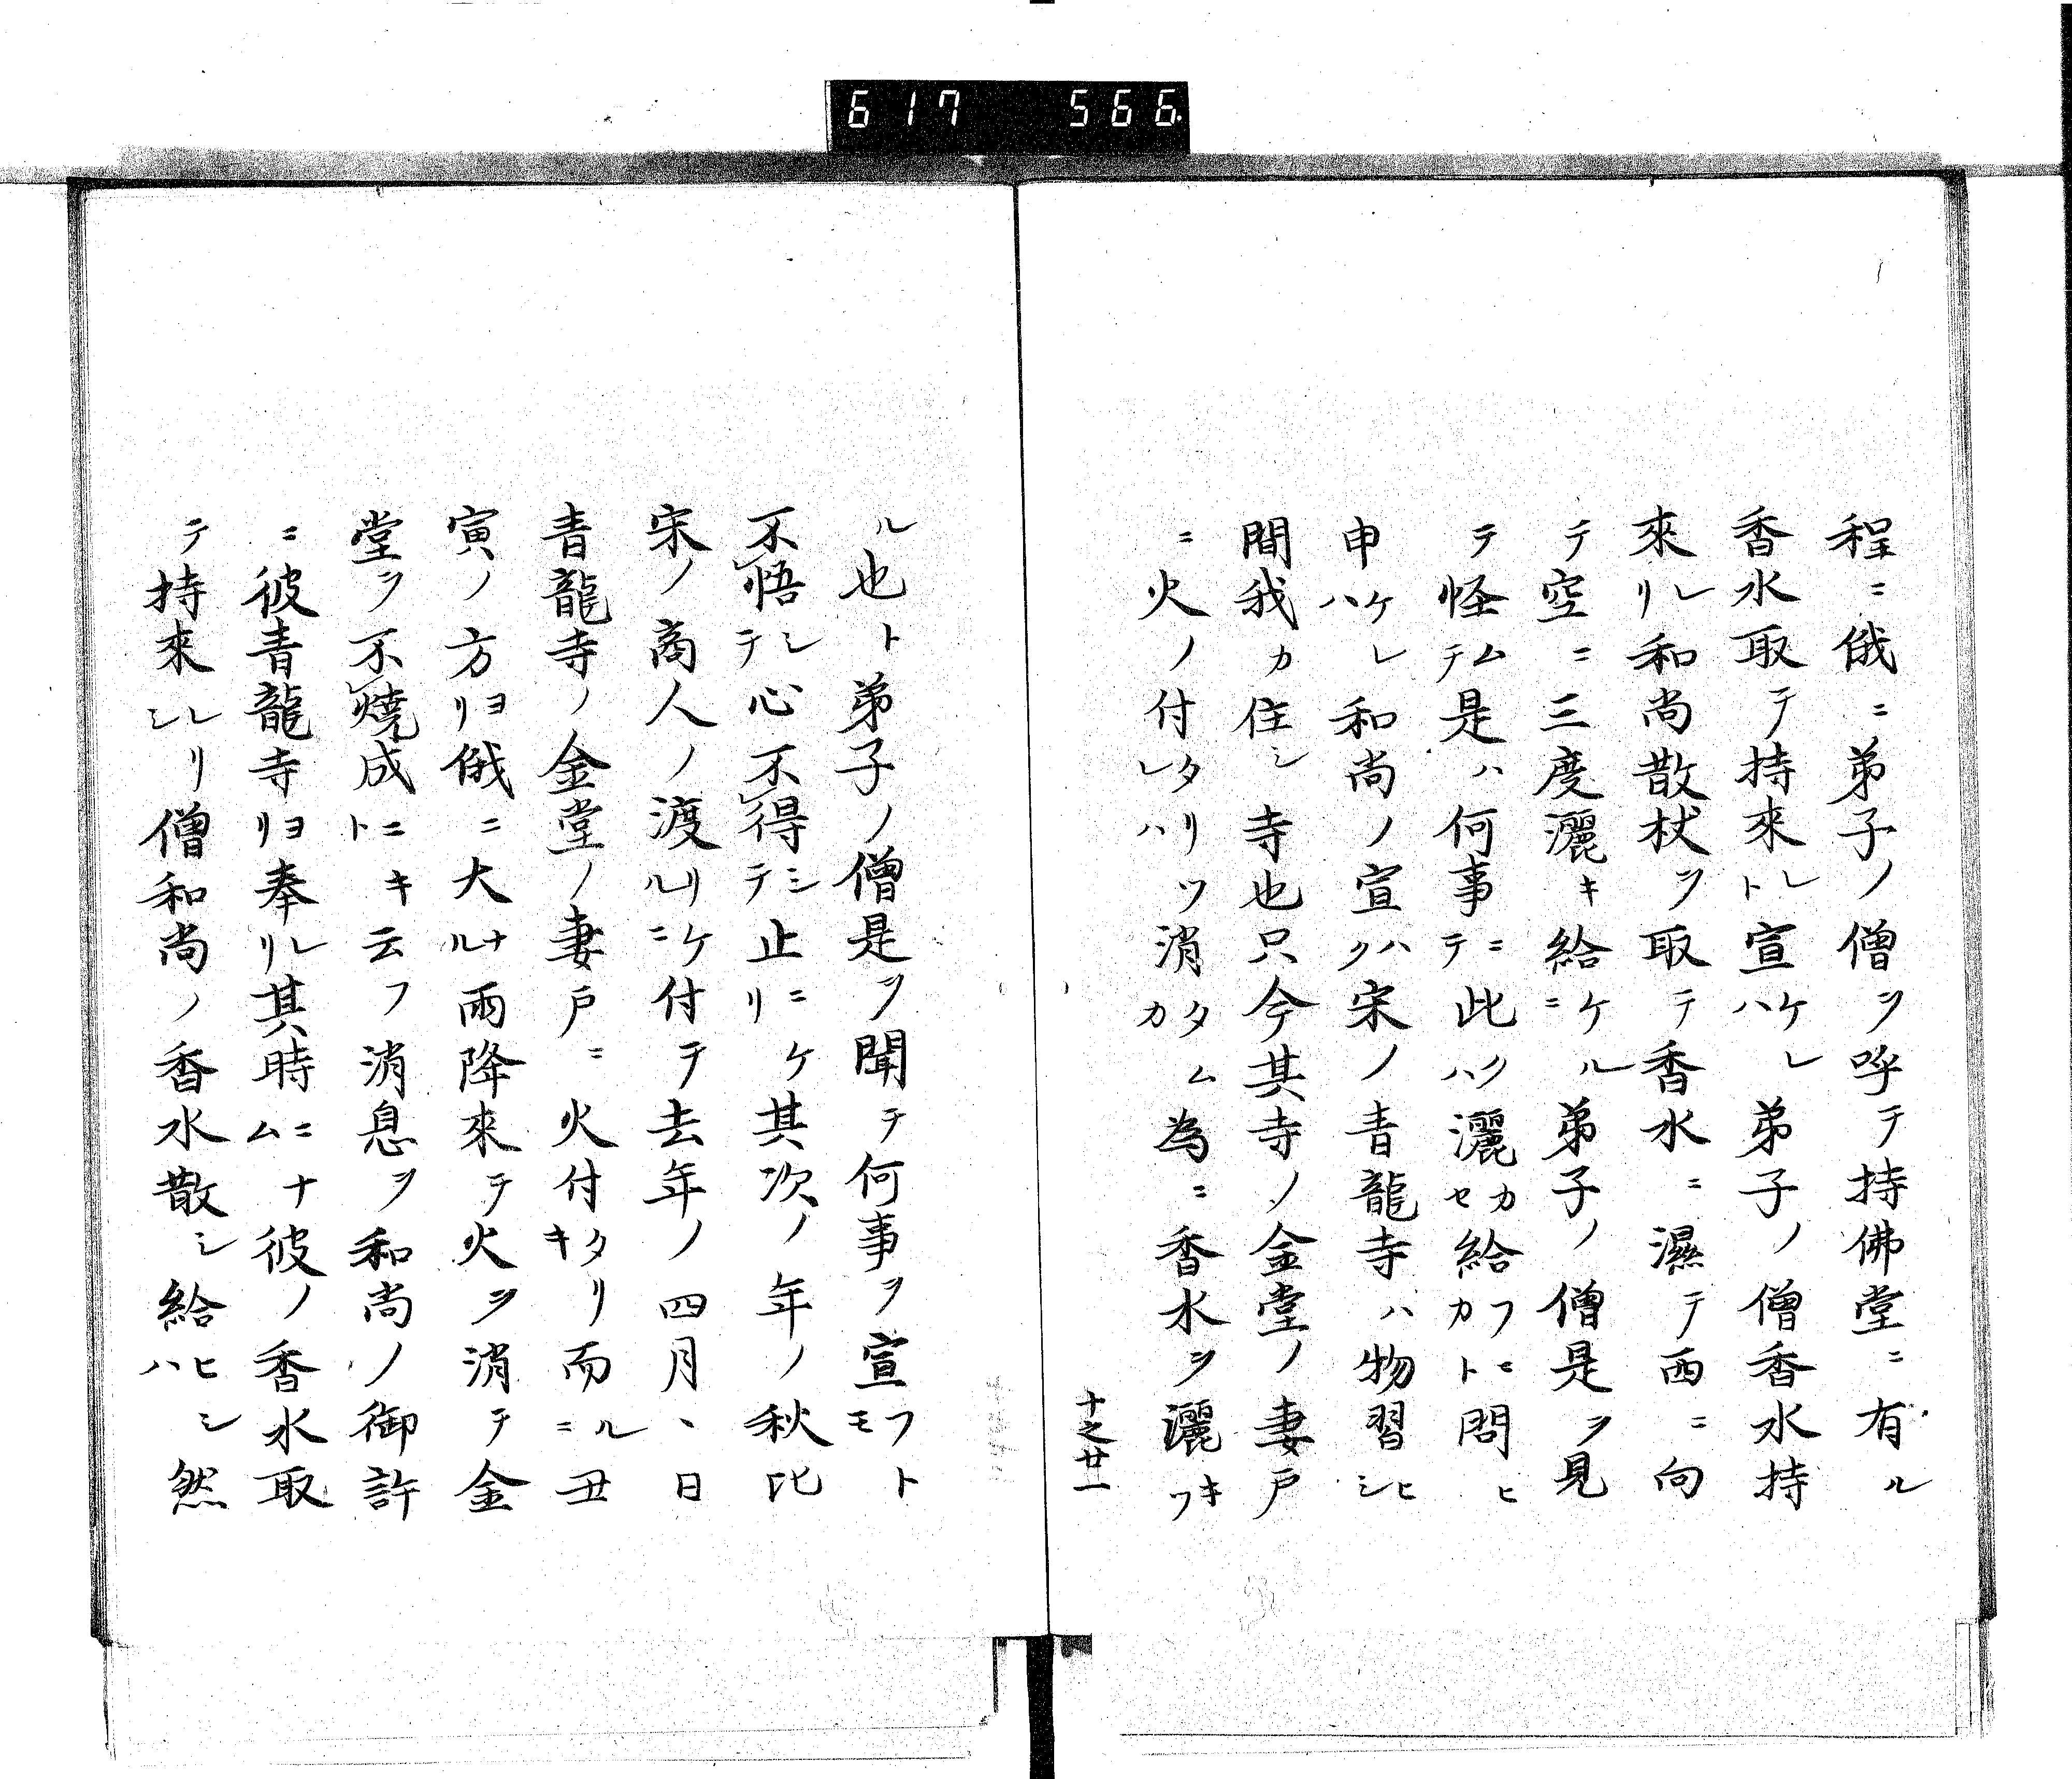 617 566
程ニ俄ニ弟子ノ僧ヲ呼テ持佛堂ニ有ル
香水取テ持來レト宣ケレハ弟子ノ僧香水持
來レリ和尚散杖ヲ取テ香水ニ濕テ西ニ向
テ空ニ三度灑キ給ケルニ弟子ノ僧是ヲ見
テ怪ムテ是ハ何事ニテ此クハ灑カセ給フニカト問ヒ
申ケレハ和尚ノ宣ハク宋ノ青龍寺ハ物習ヒシ
間我カ住シ寺也只今其寺ノ金堂ノ妻戸
ニ火ノ付タリツレハ消タムカ為ニ香水ヲ灑キツ
十之廿一
ル也ト弟子ノ僧是ヲ聞テ何事ヲ宣フトモ
不悟シテ心不得シテ止ニケリ其次ノ年ノ秋比
宋ノ商人ノ渡リケルニ付テ去年ノ四月、日
青龍寺ノ金堂ノ妻戸ニ火付タリキ而ルニ丑
寅ノ方ヨリ俄ニ大ナル雨降來テ火ヲ消テ金
堂ヲ不燒成ニキト云フ消息ヲ和尚ノ御許
ニ彼青龍寺ヨリ奉レリ其時ニナム彼ノ香水取
テ持來レリシ僧和尚ノ香水散シ給ヒシハ然